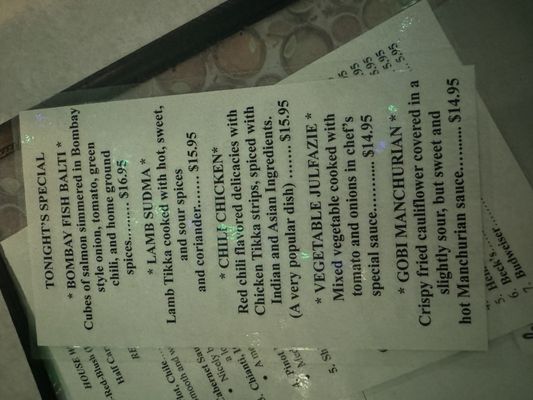 TONIGHT'S SPECIAL
* BOMBAY FISH BALTI *
Cubes of salmon simmered in Bombay
style onion, tomato, green
chili, and home ground
spices.......... $16.95
* LAMB SUDMA *
Lamb Tikka cooked with hot, sweet,
and sour spices
and coriander....... $15.95
* CHILI CHICKEN*
Red chili flavored delicacies with
Chicken Tikka strips, spiced with
Indian and Asian Ingredients.
(A very popular dish) ....... $15.95
* VEGETABLE JULFAZIE *
Mixed vegetable cooked with
tomato and onions in chef's
special sauce........... $14.95
* GOBI MANCHURIAN *
Crispy fried cauliflower covered in a
slightly sour, but sweet and
hot Manchurian sauce.......... $14.95
5.95
5.95
5.95
HOUSE
Half
Chianti,
5. Beck's
6. Budweiser
7.